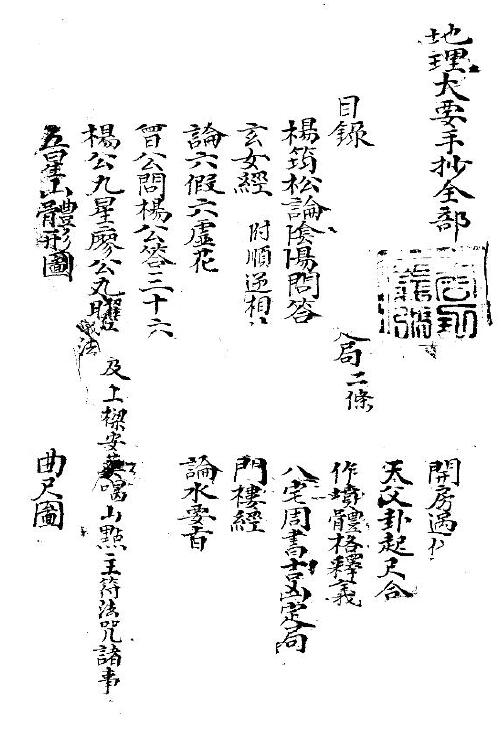 地理大要手抄全部
目録
楊筠松論陰陽問答
玄女經 附順逆相
論六假六虛花
曾公問楊公答三十六
楊公九星廖公九曜
五星山體形圖
開房遇
天父卦起尺合
局二條
作墳體格釋義
八宅周書吉凶定局
門樓經
論水要旨
及上樑安葬喝山點主符法咒諸事
曲尺圖